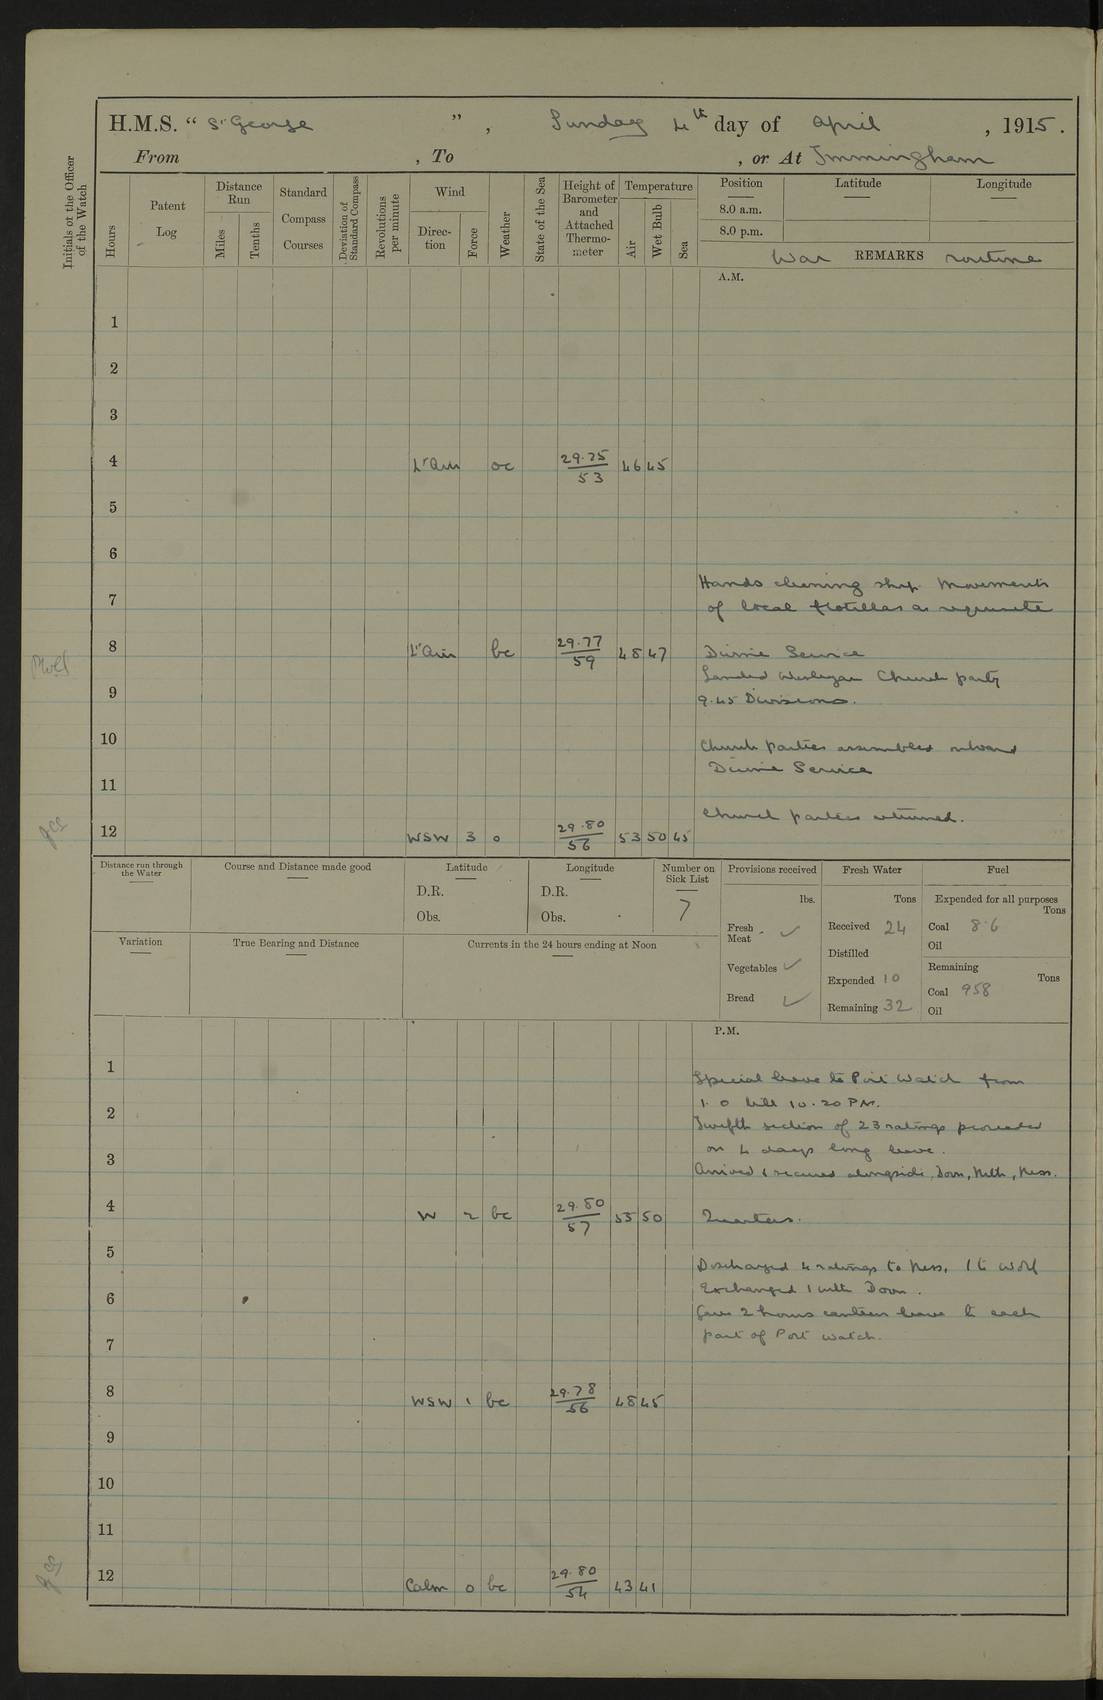 H.M.S. “ St George ” , Sunday 4th day of April , 1915.
From , To , or At Immingham
Initials of the Officer of the Watch
Hours
Patent Log
Distance Run
Miles
Tenths
Standard Compass Courses
Deviation of Standard Compass
Revolutions per minute
Wind
Direction
Force
Weather
State of the Sea
Height of Barometer and Attached Thermometer
Temperature
Air
Wet Bulb
Sea
Position Latitude Longitude
8.0 a.m.
8.0 p.m.
War REMARKS routine
A.M.
1
2
3
4 Lt Airs oc 29.75/53 46 45
5
6
Hands cleaning ship Movements
7 of local flotillas as requisite
8 Lt Airs bc 29.77/59 48 47 Divine Service
Landed Wesleyan Church party
9 9.45 Divisions.
10 Church parties assembled onboard
Divine Service
11
Church parties returned.
12 WSW 3 o 29.80/56 53 50 45
Distance run through the Water
Course and Distance made good
Latitude
D.R.
Obs.
Longitude
D.R.
Obs.
Number on Sick List
7
Variation
True Bearing and Distance
Currents in the 24 hours ending at Noon
Provisions received
lbs.
Fresh Meat - ✓
Vegetables ✓
Bread ✓
Fresh Water
Tons
Received 24
Distilled
Expended 10
Remaining 32
Fuel
Expended for all purposes
Tons
Coal 8.6
Oil
Remaining
Tons
Coal 958
Oil
P.M.
1 Special leave to Port Watch from
1.0 till 10.20 PM.
2 Twelfth section of 23 ratings proceeded
on 4 days long leave.
3 Arrived & secured alongside, Doon, Nith, Ness.
4 W 2 bc 29.80/57 55 50 Quarters.
5 Discharged 4 ratings to Ness, 1 to Wolf
6 Exchanged 1 with Doon.
Gave 2 hours canteen leave to each
7 part of Port Watch.
8 WSW 1 bc 29.78/56 48 45
9
10
11
12 Calm 0 bc 29.80/54 43 41